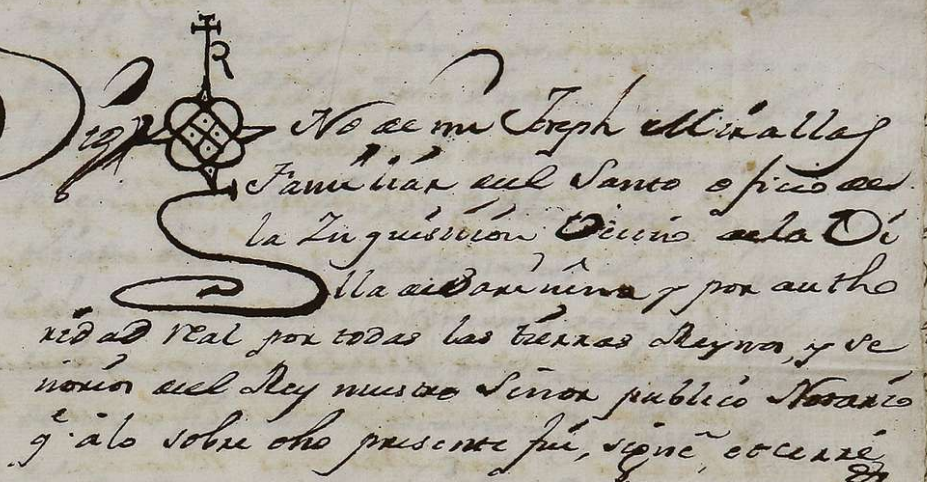 Sig No de mi Joseph Mirallas
Familiar del Santo oficio de
la Inquisicion Vecino de la Vi
lla de Sariñena y por autho
ridad real por todas las tierras Reynos, y se
ñorios del Rey nuestro Señor publico Notario
qᵉ á lo sobre dho presente fui, signé et cerré